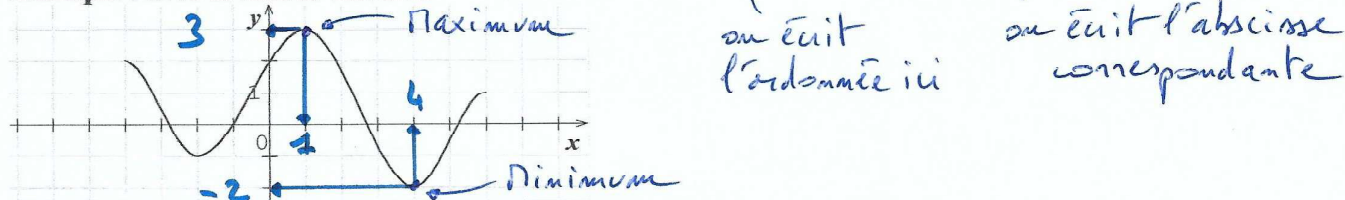 y
3
Maximum
on écrit
l'ordonnée ici
on écrit l'abscisse
correspondante
4
1
0
1
x
-2
Minimum